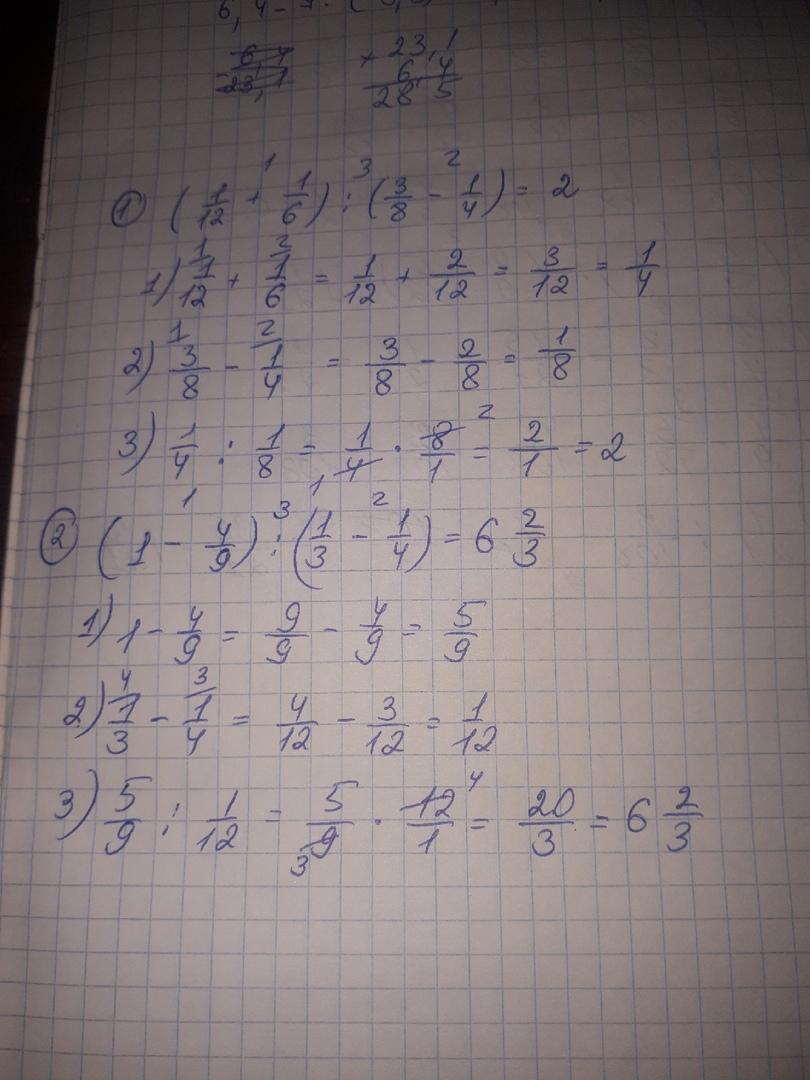 6,4 -
6,4
23,1
+ 23,1
6,4
28,5
① (1/12 + 1/6) : (3/8 - 1/4) = 2
1) 1/12 + 1/6 = 1/12 + 2/12 = 3/12 = 1/4
2) 3/8 - 1/4 = 3/8 - 2/8 = 1/8
3) 1/4 : 1/8 = 1/4 · 8/1 = 2/1 = 2
② (1 - 4/9) : (1/3 - 1/4) = 6 2/3
1) 1 - 4/9 = 9/9 - 4/9 = 5/9
2) 1/3 - 1/4 = 4/12 - 3/12 = 1/12
3) 5/9 : 1/12 = 5/9 · 12/1 = 20/3 = 6 2/3